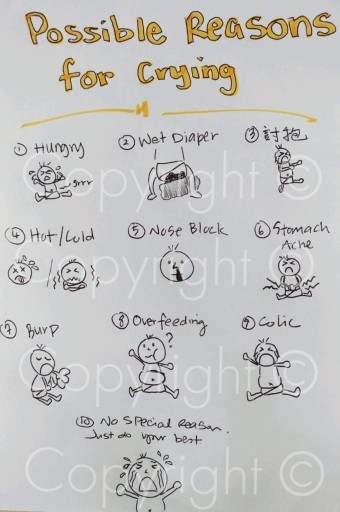 Possible Reasons
for Crying
① Hungry
② Wet Diaper
③ 討抱
grrr
④ Hot/Cold
⑤ Nose Block
⑥ Stomach
Ache
⑦ Burp
⑧ Overfeeding
⑨ Colic
?
⑩ No Special Reason.
Just do your best
Copyright ©
Copyright ©
Copyright ©
Copyright ©